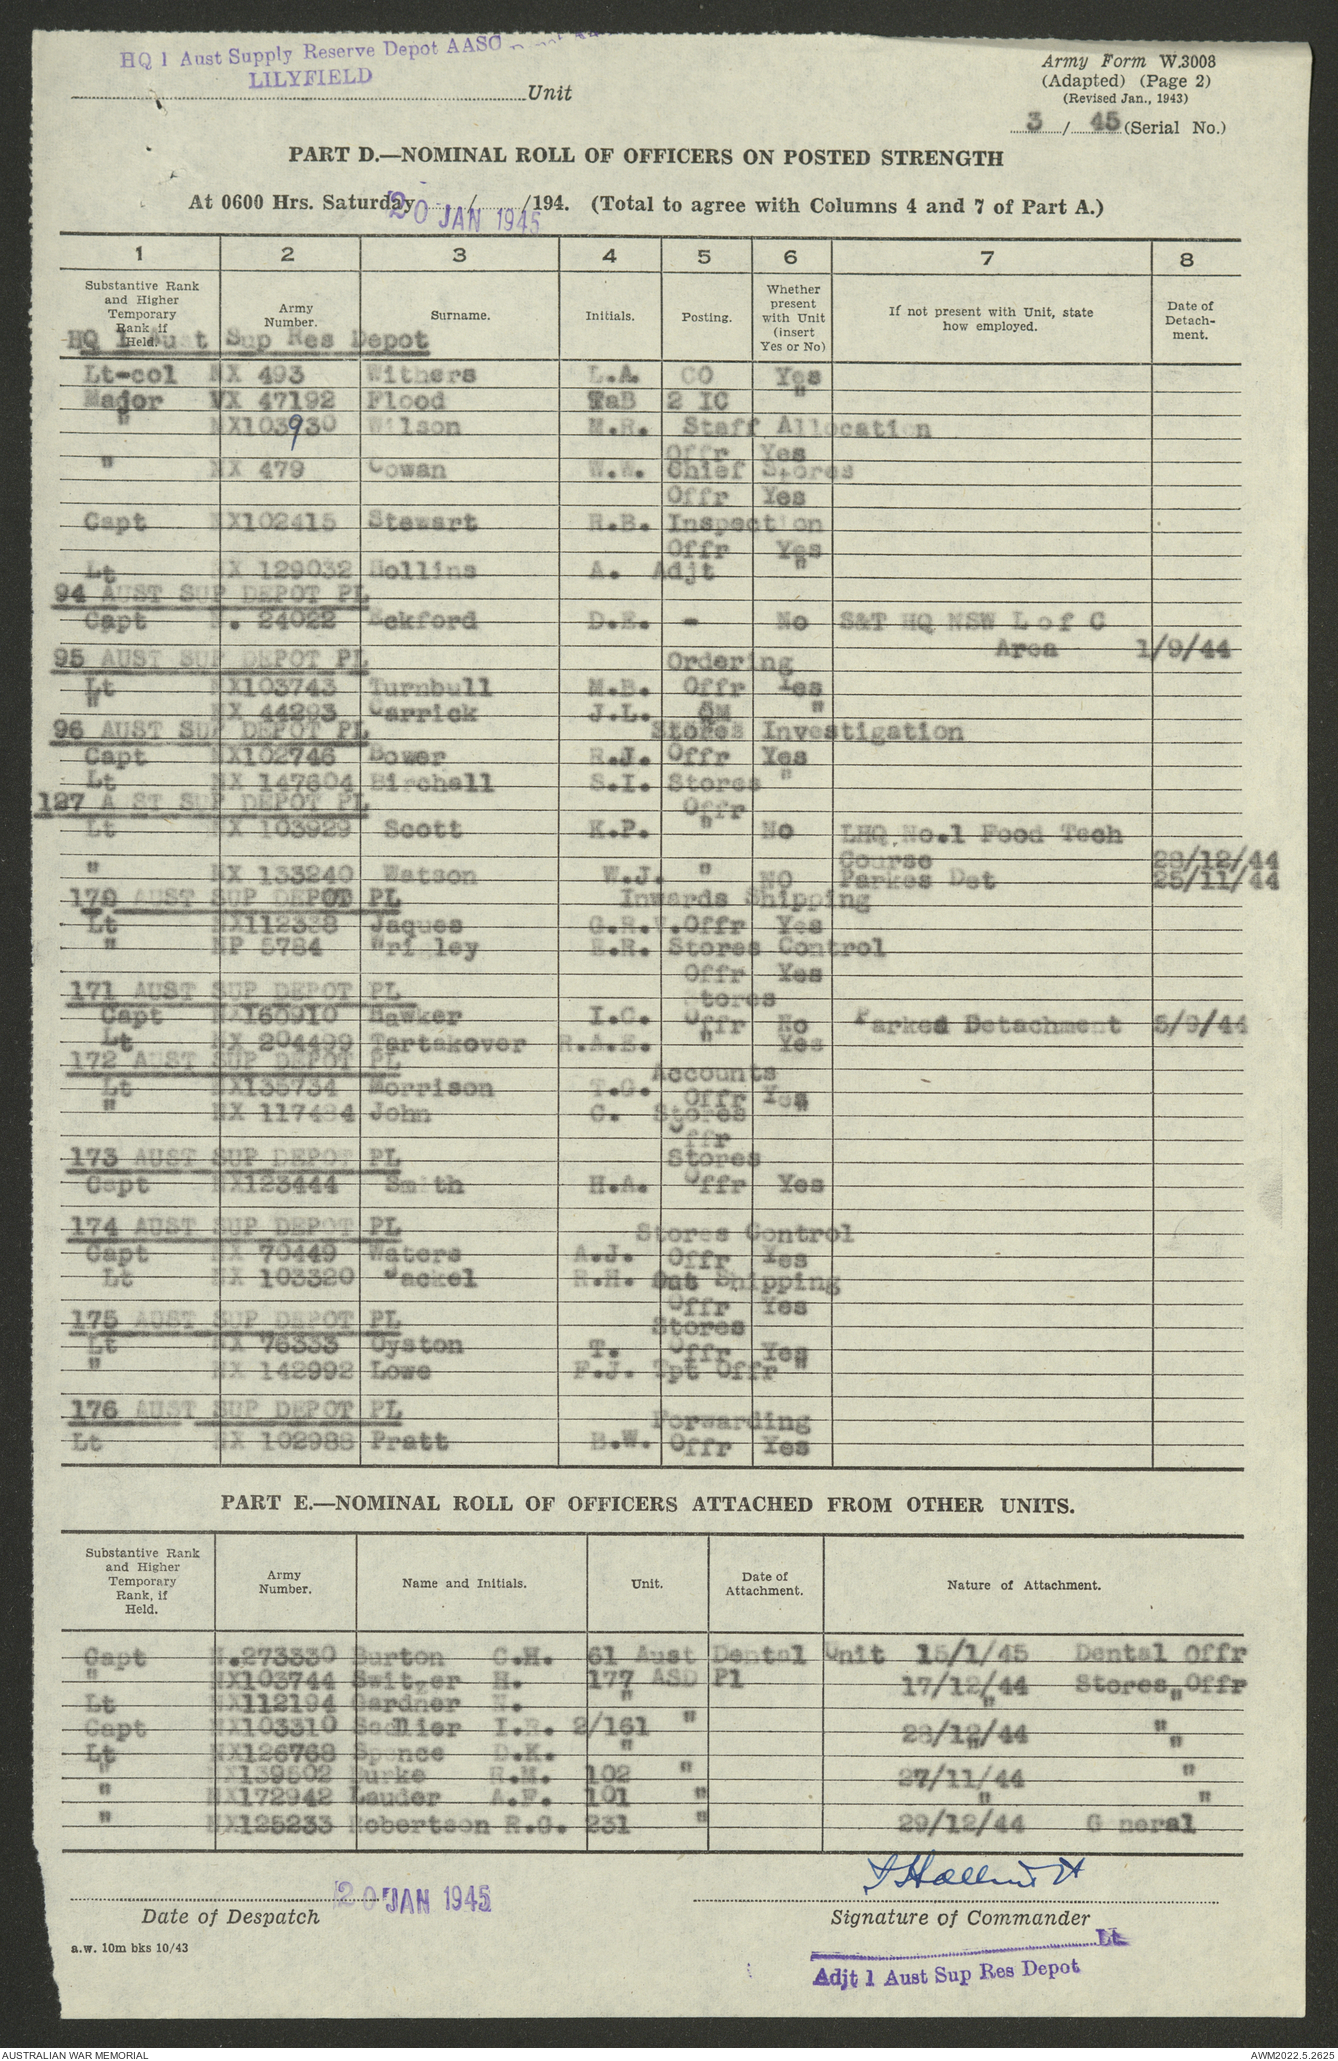 HQ 1 Aust Supply Reserve Depot AASC
LILYFIELD
Unit
Army Form W.3008
(Adapted) (Page 2)
(Revised Jan., 1943)
3 / 45 (Serial No.)
PART D.—NOMINAL ROLL OF OFFICERS ON POSTED STRENGTH
At 0600 Hrs. Saturday 20 JAN 1945 / /194. (Total to agree with Columns 4 and 7 of Part A.)
1 2 3 4 5 6 7 8
Substantive Rank and Higher Temporary Rank, if Held. Army Number. Surname. Initials. Posting. Whether present with Unit (insert Yes or No) If not present with Unit, state how employed. Date of Detach-ment.
HQ 1 Aust Sup Res Depot
Lt-col NX 493 Withers L.A. CO Yes
Major VX 47192 Flood TaB 2 IC "
" NX103930 Wilson M.R. Staff Allocation
Offr Yes
" NX 479 Cowan W.W. Chief Stores
Offr Yes
Capt NX102415 Stewart R.B. Inspection
Offr Yes
Lt NX 129032 Hollins A. Adjt "
94 AUST SUP DEPOT PL
Capt N. 24022 Eckford D.E. - No S&T HQ NSW L of C
Area 1/9/44
95 AUST SUP DEPOT PL Ordering
Lt NX103743 Turnbull M.B. Offr Yes
" NX 44293 Carrick J.L. QM "
96 AUST SUP DEPOT PL Stores Investigation
Capt NX102746 Bower R.J. Offr Yes
Lt NX 147604 Birchell S.I. Stores "
127 AUST SUP DEPOT PL Offr
Lt NX 103929 Scott K.P. " No LHQ No.1 Food Tech
Course 28/12/44
" NX 133240 Watson W.J. " NO Parkes Det 25/11/44
170 AUST SUP DEPOT PL Inwards Shipping
Lt NX112338 Jaques G.R.V. Offr Yes
" NP 5784 Wrigley E.R. Stores Control
Offr Yes
171 AUST SUP DEPOT PL Stores
Capt NX160910 Hawker I.C. Offr No Parkes Detachment 5/9/44
Lt NX 204499 Tartakover R.A.E. " Yes
172 AUST SUP DEPOT PL Accounts
Lt NX135734 Morrison T.G. Offr Yes
" NX 117484 John C. Stores "
Offr
173 AUST SUP DEPOT PL Stores
Capt NX123444 Smith H.A. Offr Yes
174 AUST SUP DEPOT PL Stores Control
Capt NX 70449 Waters A.J. Offr Yes
Lt NX 103320 Jackel R.H. Out Shipping
Offr Yes
175 AUST SUP DEPOT PL Stores
Lt NX 76333 Oyston T. Offr Yes
" NX 142992 Lowe F.J. Tpt Offr "
176 AUST SUP DEPOT PL Forwarding
Lt NX 102988 Pratt B.W. Offr Yes
PART E.—NOMINAL ROLL OF OFFICERS ATTACHED FROM OTHER UNITS.
Substantive Rank and Higher Temporary Rank, if Held. Army Number. Name and Initials. Unit. Date of Attachment. Nature of Attachment.
Capt N.273330 Burton C.H. 61 Aust Dental Unit 15/1/45 Dental Offr
" NX103744 Switzer H. 177 ASD Pl 17/12/44 Stores Offr
Lt NX112194 Gardner N. " " "
Capt NX103310 Sadlier I.R. 2/161 " 28/12/44 "
Lt NX126768 Spence D.K. " " "
" NX139502 Burke R.M. 102 " 27/11/44 "
" NX172942 Lauder A.F. 101 " " "
" NX125233 Robertson R.G. 231 " 29/12/44 General
20 JAN 1945
Date of Despatch
Signature of Commander
Lt
Adjt 1 Aust Sup Res Depot
a.w. 10m bks 10/43
AUSTRALIAN WAR MEMORIAL
AWM2022.5.2625